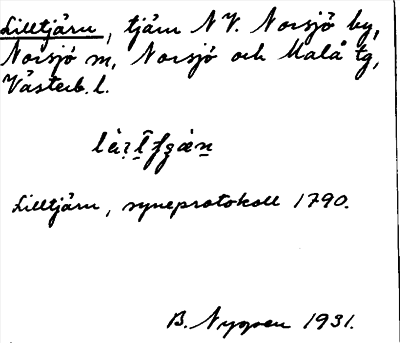 Lilltjärn, tjärn N V. Norsjö by,
Norsjö sn, Norsjö och Malå tg,
Västerb. l.
Lilltjärn, syneprotokoll 1790.
B. Nygren 1931.